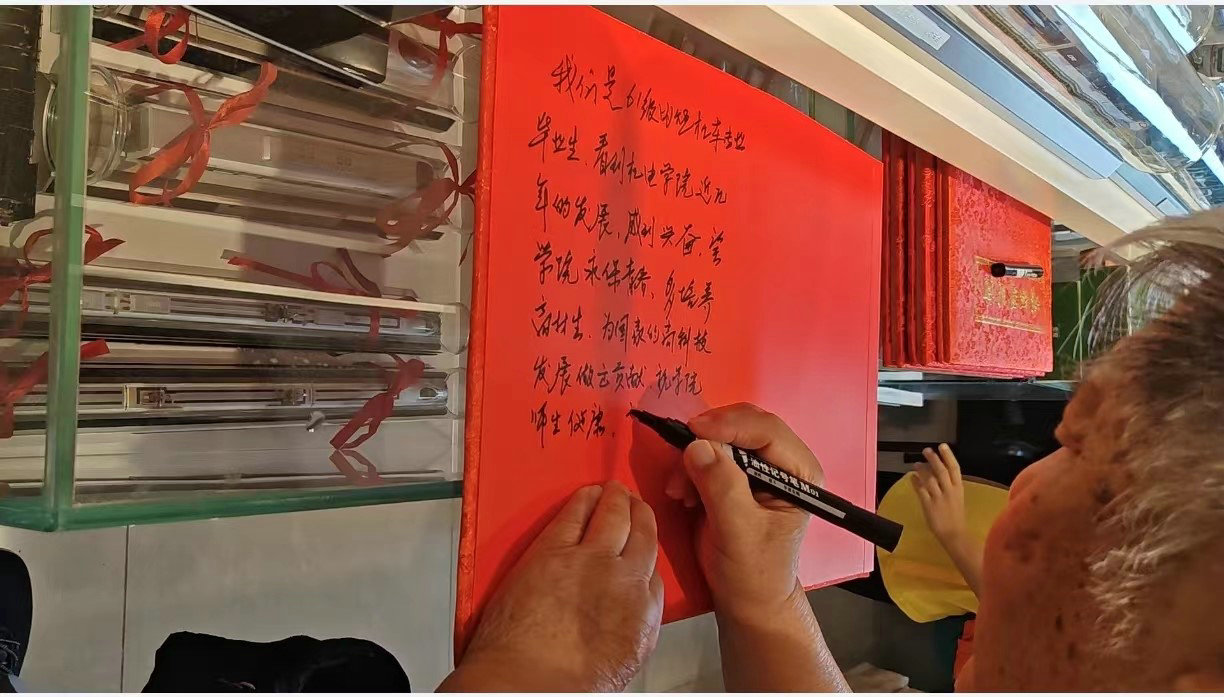 我们是61级的电机车专业
毕业生、看到机电学院近几
年的发展,感到兴奋,望
学院永保青春、多培养
高材生、为国家的高科技
发展做出贡献、祝学院
师生健康、
油性记号笔